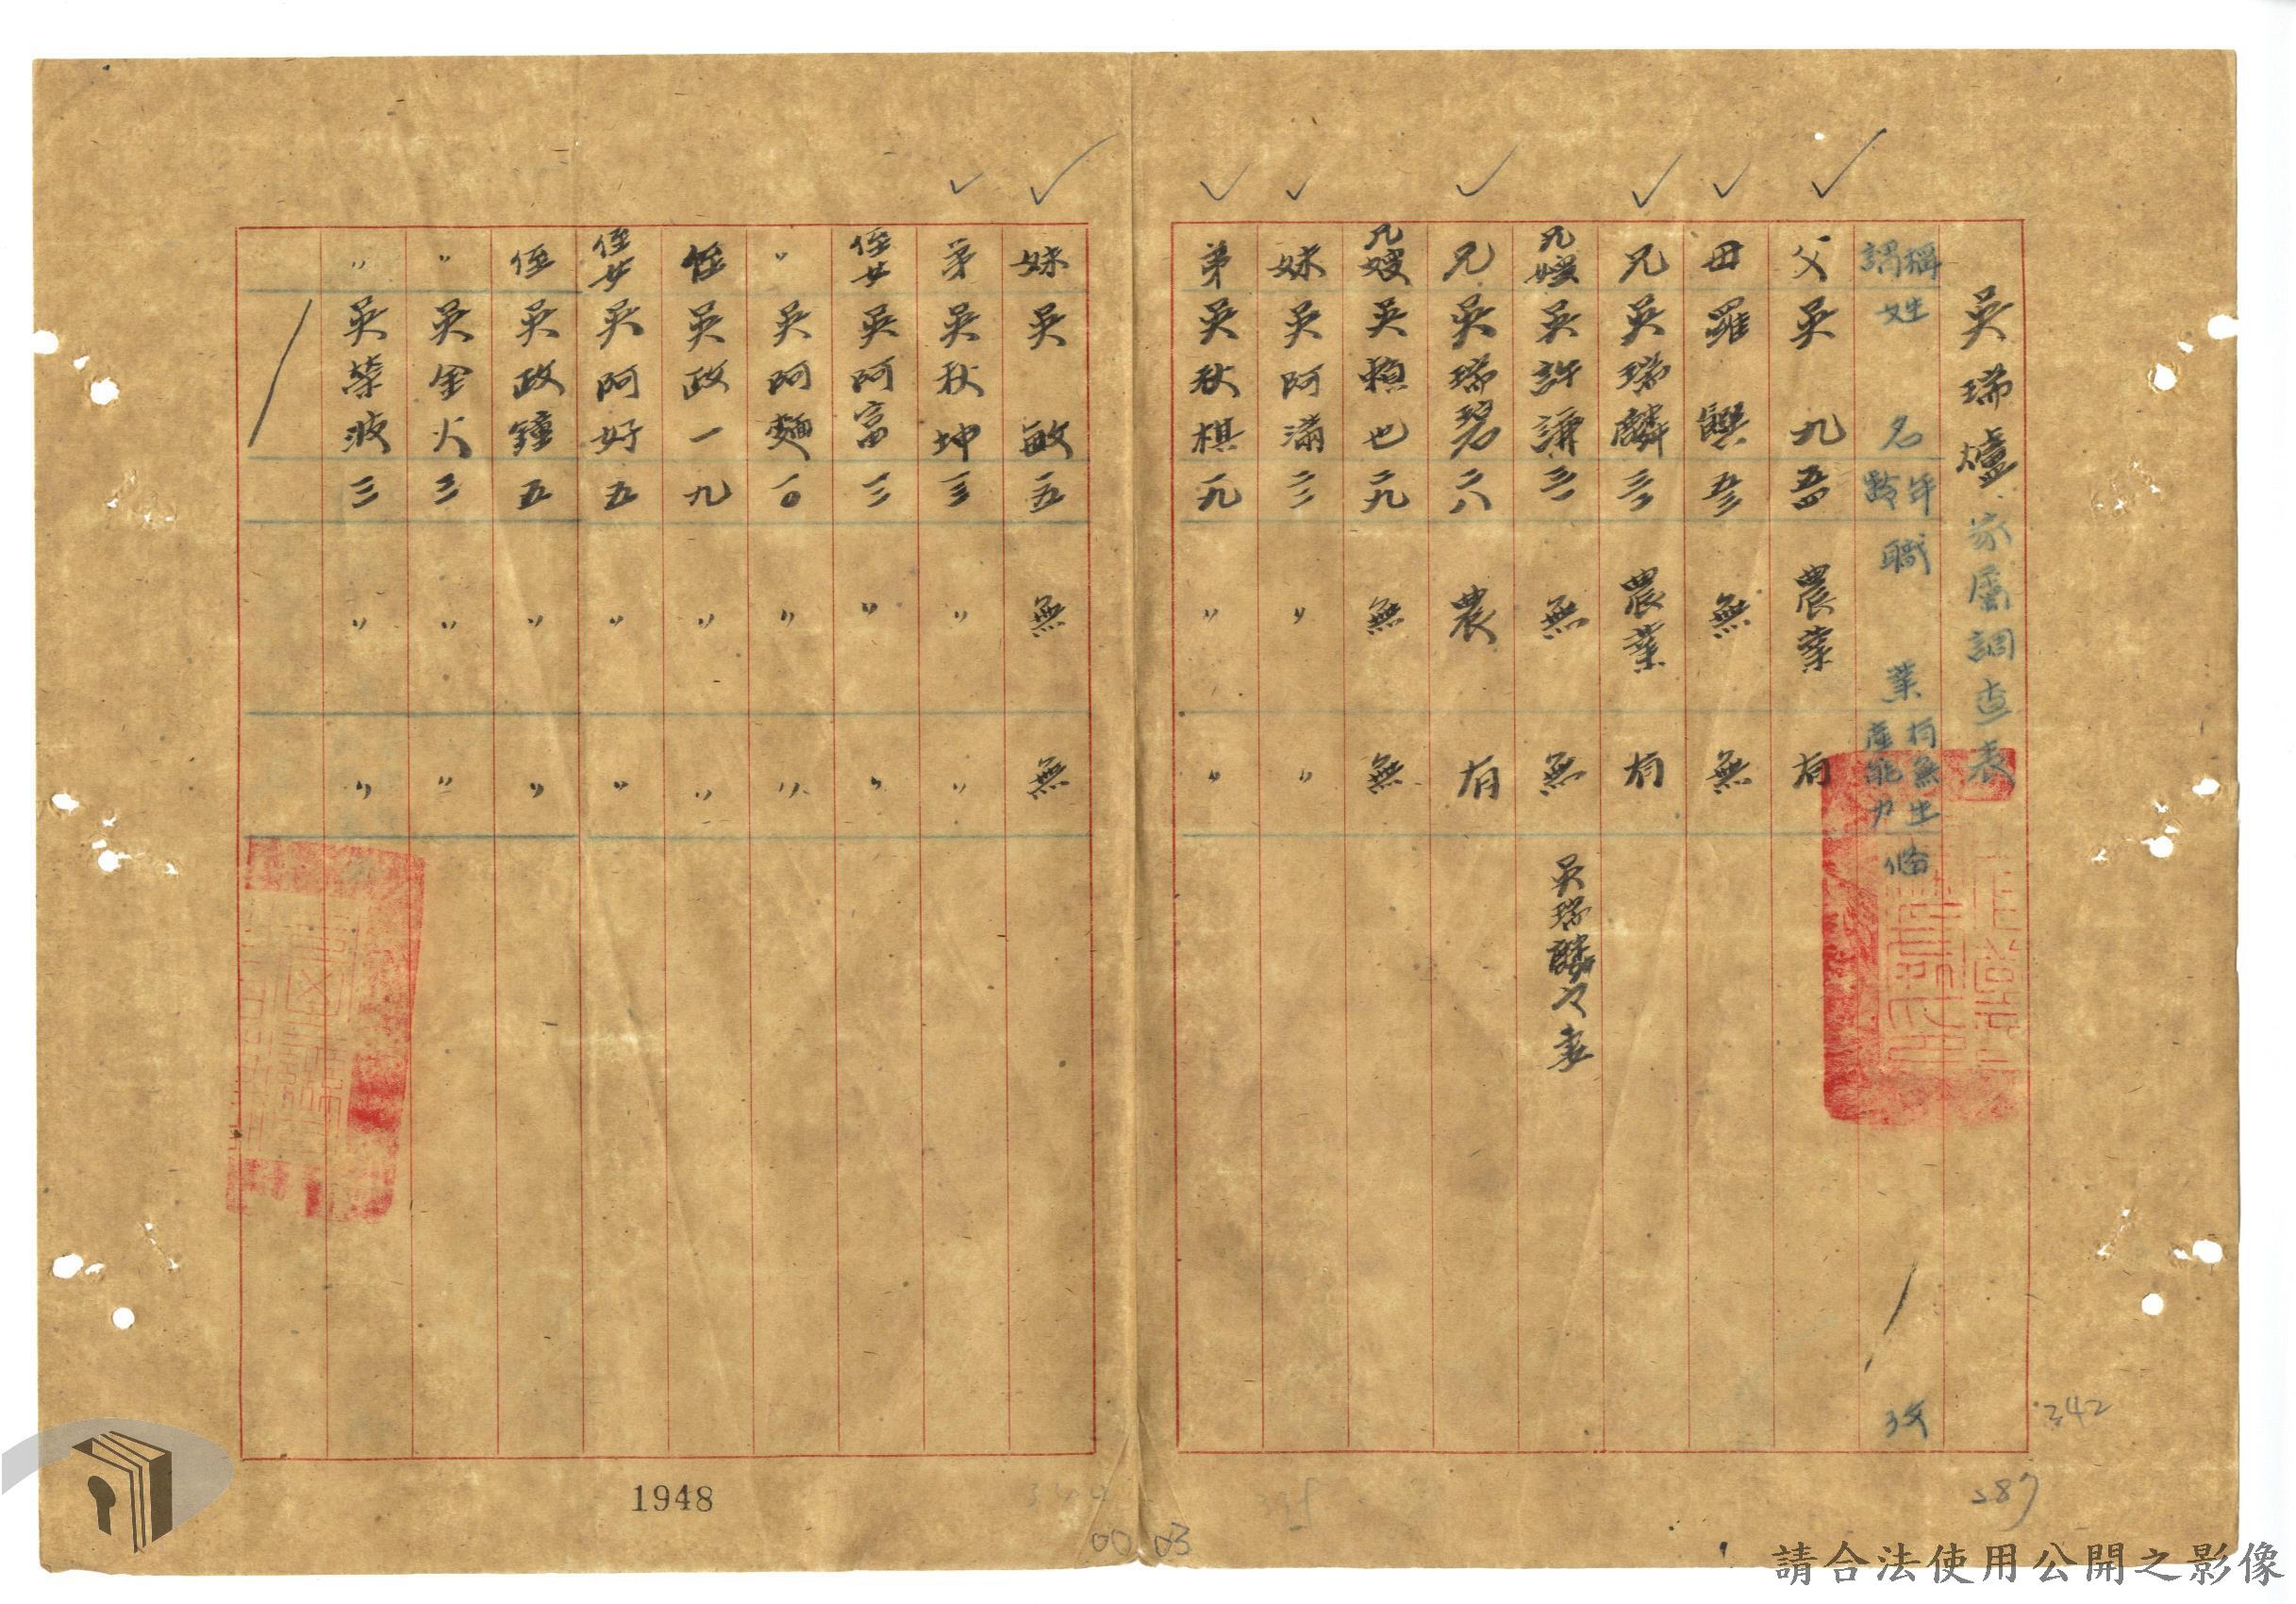 吳瑞爐家屬調查表
稱謂 姓名 年齡 職業 有無生產能力 備 攷
父 吳九 五四 農業 有
母 羅 五三 無 無
兄 吳瑞麟 三三 農業 有
兄嫂 吳許謙 三一 無 無 吳瑞麟之妻
兄 吳瑞碧 二八 農 有
兄嫂 吳賴也 二九 無 無
妹 吳阿滿 二二 〃 〃
弟 吳秋棋 一九 〃 〃
妹 吳敏 一五 無 無
弟 吳秋坤 一三 〃 〃
侄女 吳阿富 一三 〃 〃
〃 吳阿麵 一〇 〃 〃
侄 吳政一 九 〃 〃
侄女 吳阿好 五 〃 〃
侄 吳政鐘 五 〃 〃
〃 吳金火 三 〃 〃
〃 吳榮波 三 〃 〃
342
287
1948
00 03
請合法使用公開之影像